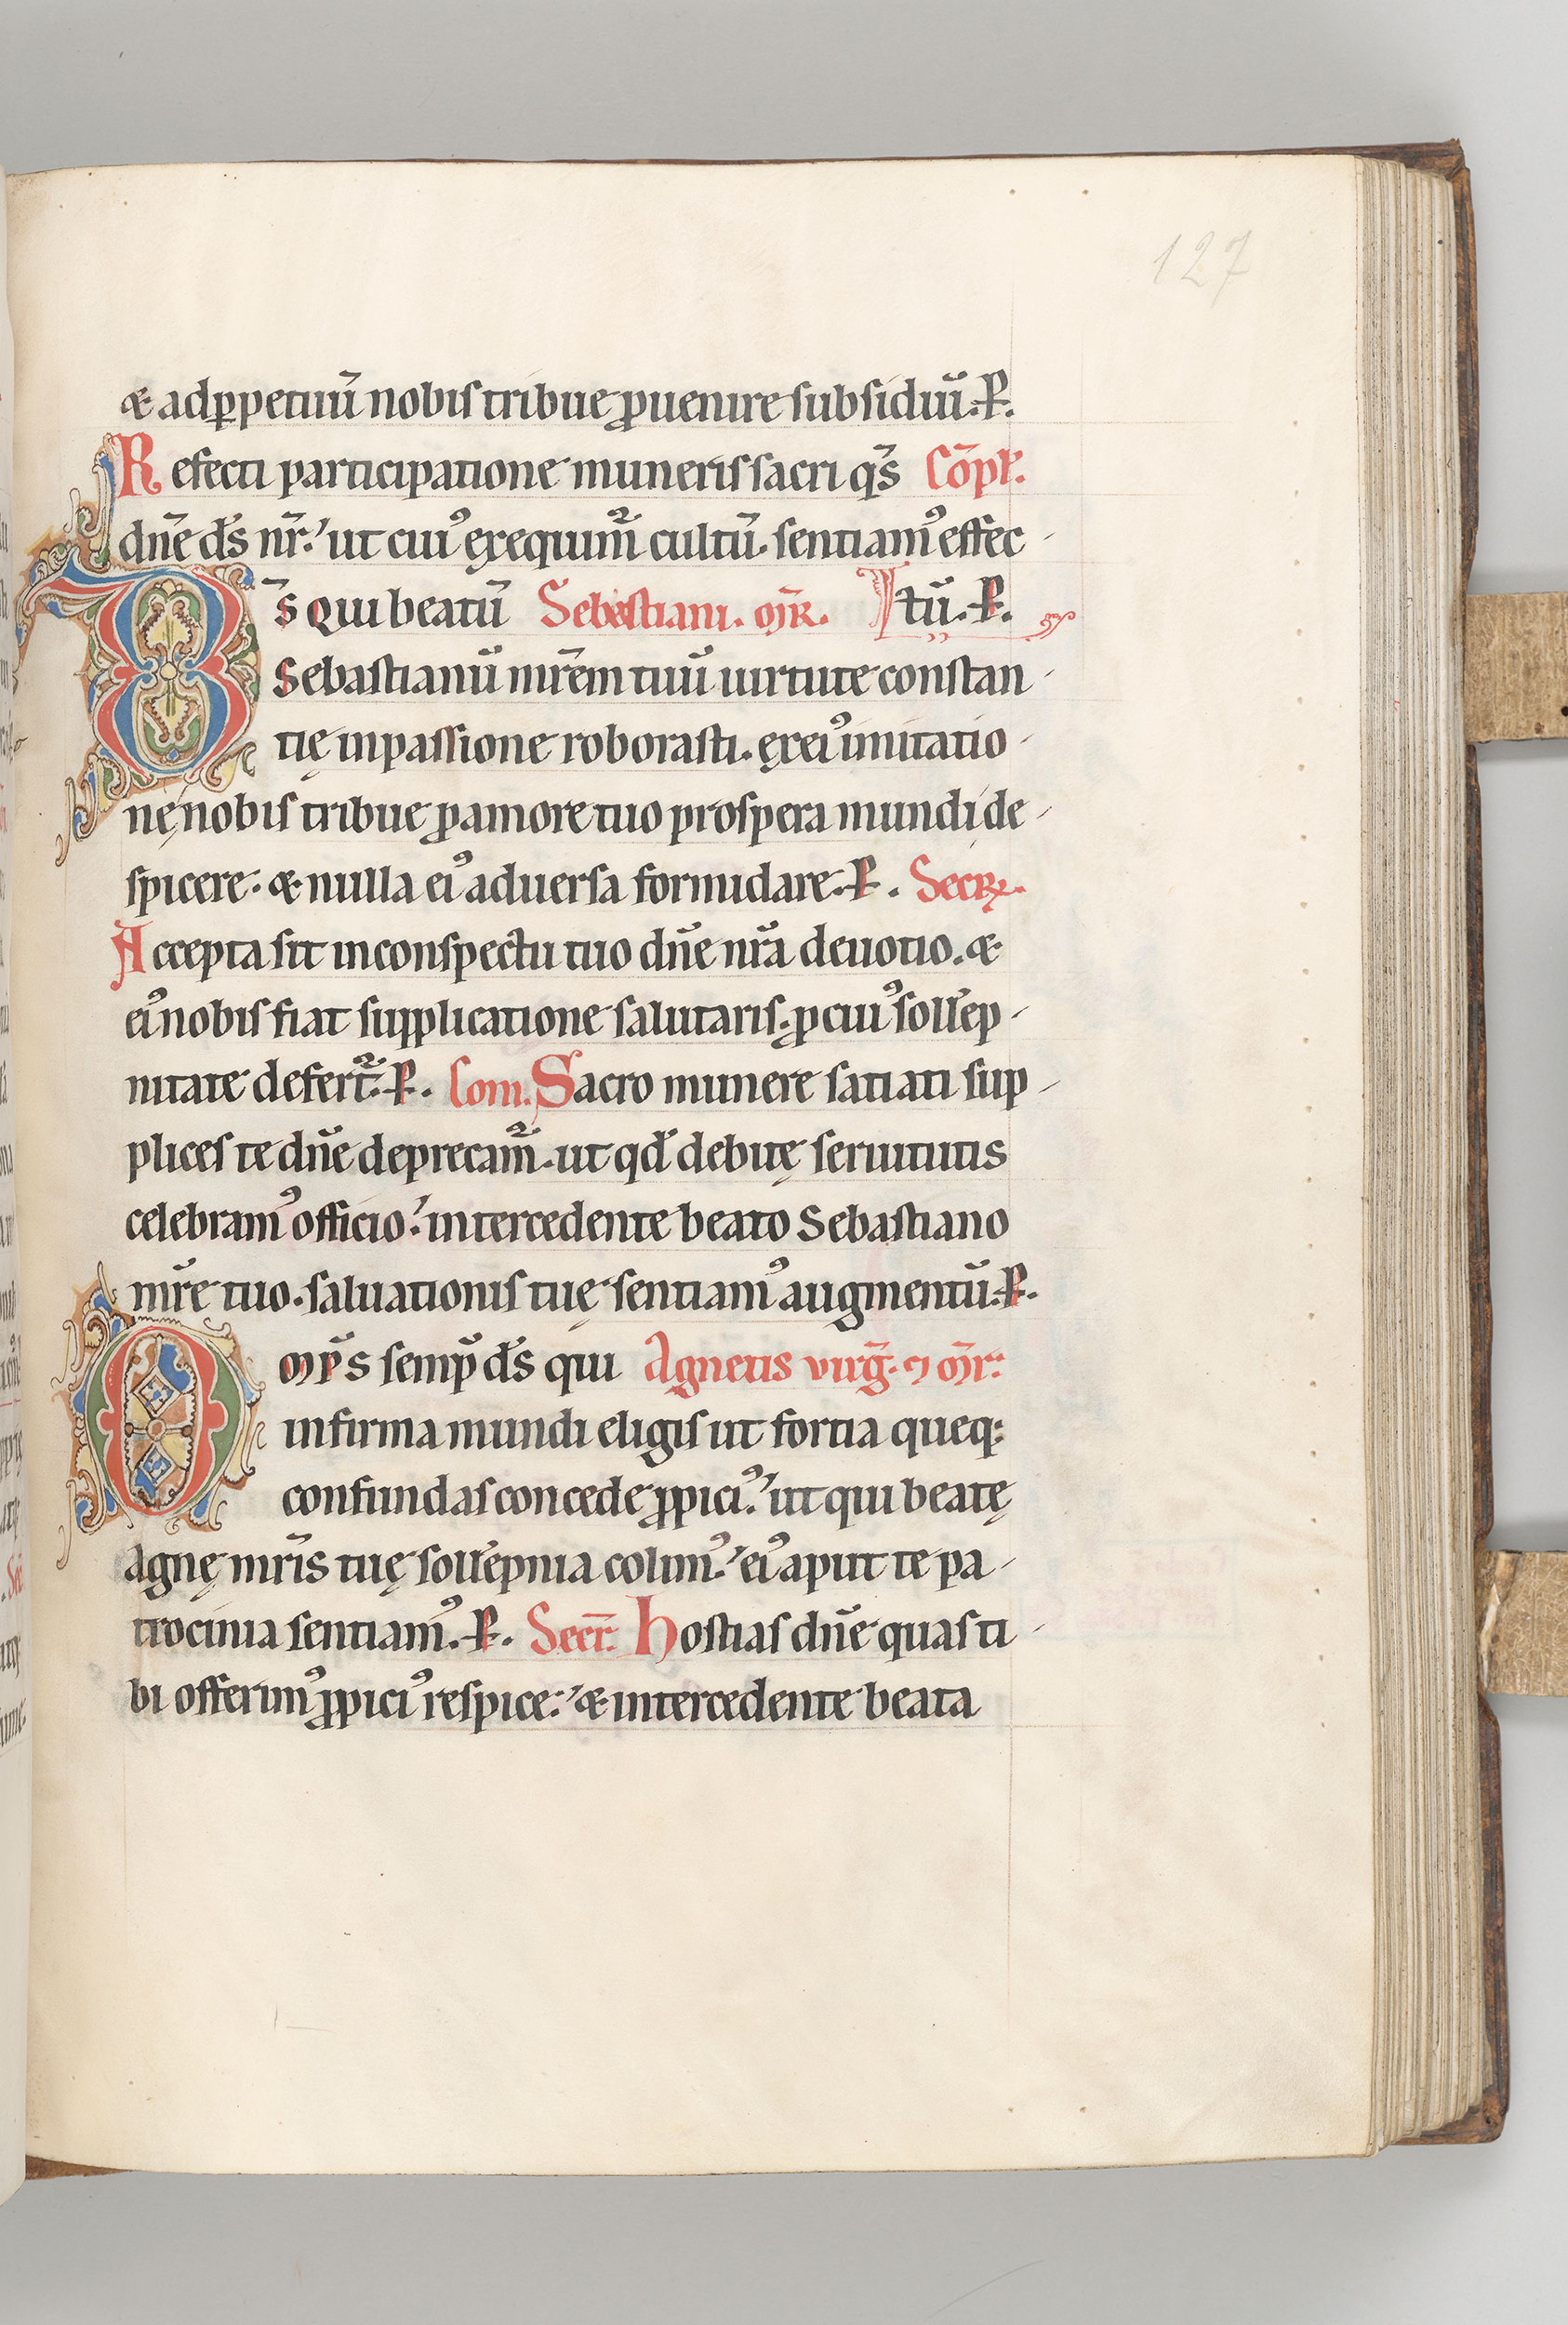 127
& adp̲petuū nobis tribue ꝓuenire subsidiū. P.
Refecti participatione muneris sacri qs̄ Co͞pl.
dn̄e ds̄ nr̄. ut cuiꝰ exequimur̄ cultū. sentiamꝰ effec-
D s̄ Qui beatū Sebastiani. m̄R. tū. P.
Sebastianū mr̄em tuū uirtute constan-
tię in passione roborasti. ęx eiꝰ imitatio-
nę nobis tribue ꝓ amore tuo prospera mundi de-
spicere. & nulla eiꝰ aduersa formidare. P. Secꝶ.
Accepta sit in conspectu tuo dn̄e nr̄a deuotio. &
eiꝰ nobis fiat supplicatione salutaris. ꝓ cuiꝰ soll̄ep-
nitate defert̄. P. Com. Sacro munere satiati sup-
plices te dn̄e deprecam̄. ut qd̄ debitę seruitutis
celebramꝰ officio. intercedente beato Sebastiano
mr̄e tuo. saluationis tuę sentiamꝰ augmentū. P.
O mp̄s semp̄ ds̄ qui Agnetis virḡ. ⁊ m̄r.
infirma mundi eligis ut fortia queq;
confundas concede ꝓpiciꝰ. ut qui beatę
Agnę mr̄is tuę soll̄epnia colimꝰ. eiꝰ aput te pa-
trocinia sentiamꝰ. P. Secr̄. Hostias dn̄e quas ti-
bi offerimꝰ ꝓpiciꝰ respice. & intercedente beata